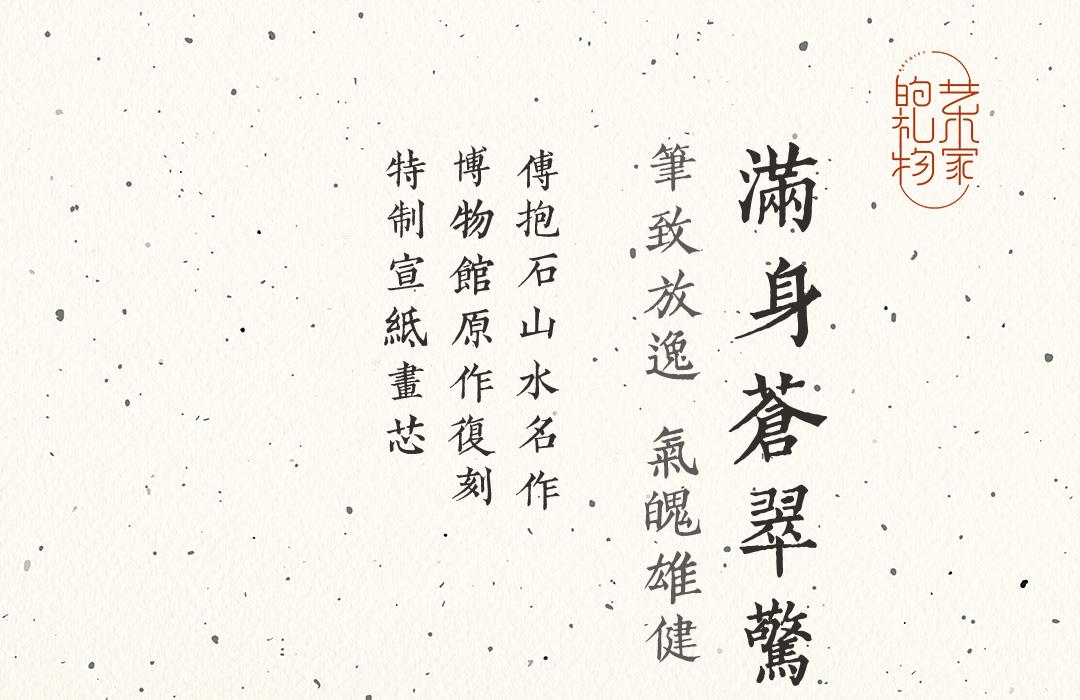 艺术家
的礼物
滿身蒼翠驚
筆致放逸 氣魄雄健
傅抱石山水名作
博物館原作復刻
特制宣紙畫芯